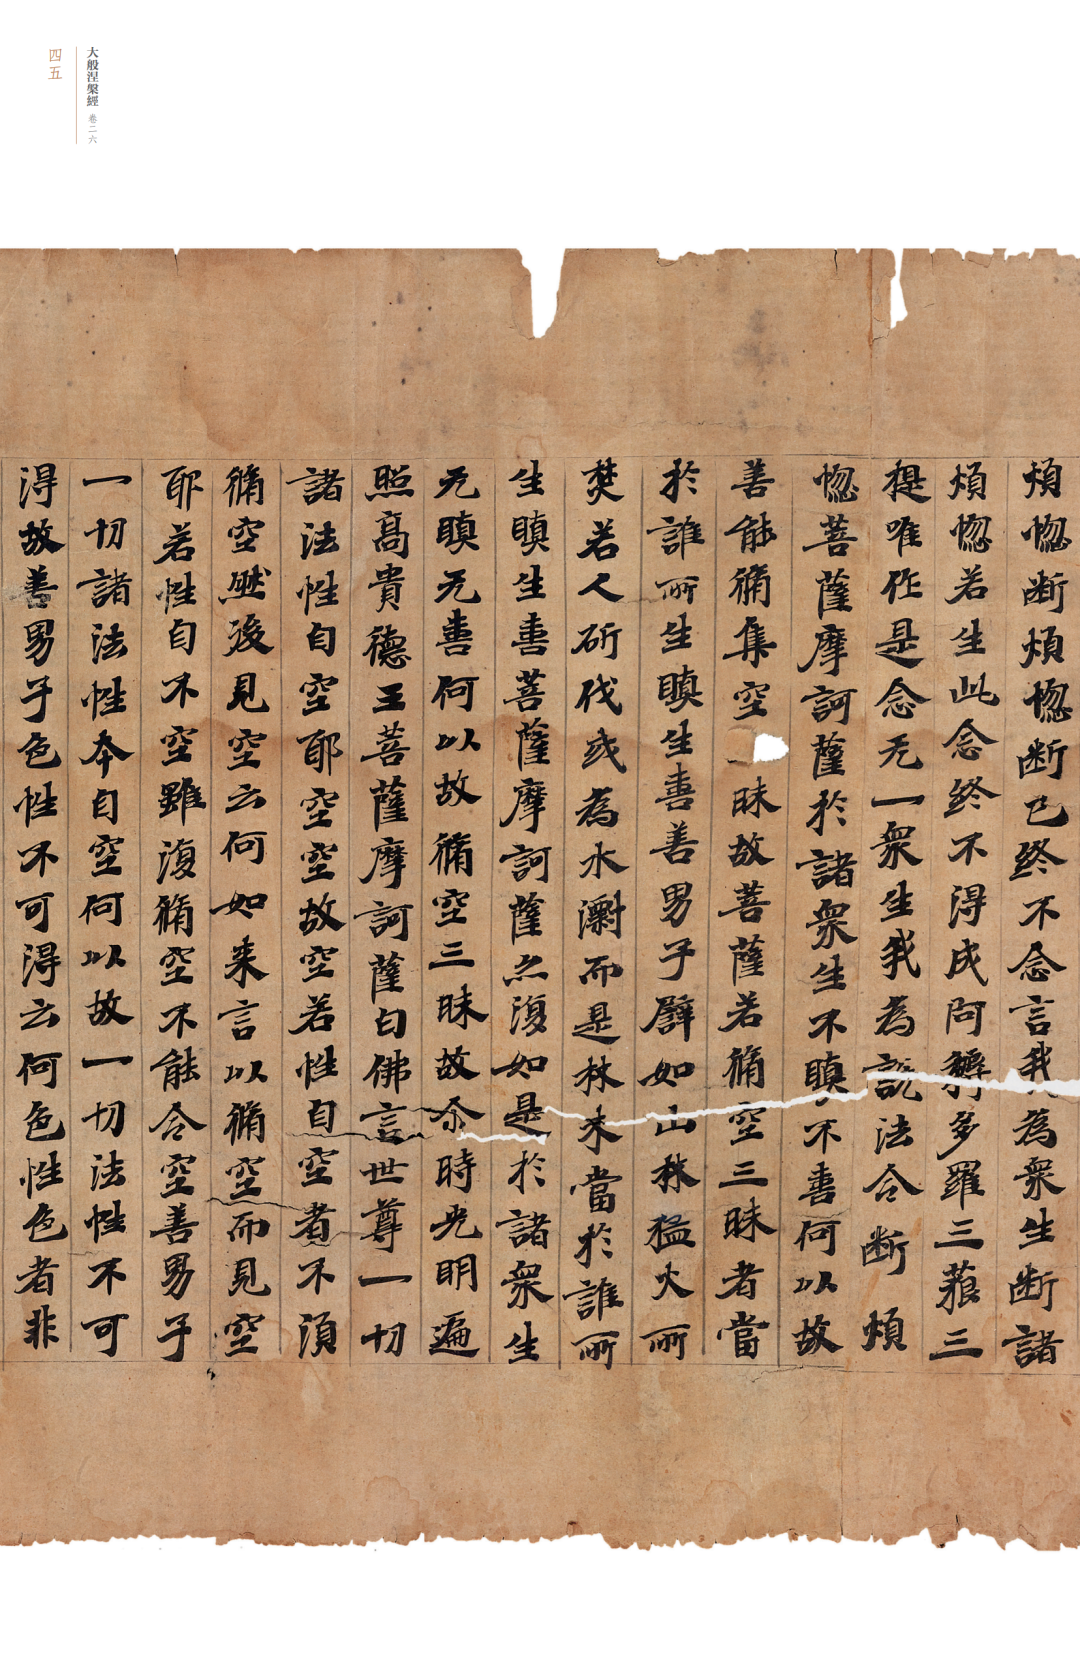 大般涅槃經 卷二六
四五
煩惚断煩惚断已終不念言我為衆生断諸
煩惚若生此念終不得成阿耨多羅三藐三
提唯作是念无一衆生我為說法令断煩
惚菩薩摩訶薩於諸衆生不瞋不恚何以故
善能脩集空昧故菩薩若脩空三昧者當
於誰所生瞋生恚善男子譬如山林猛火所
焚若人斫伐或為水澍而是林木當於誰所
生瞋生恚菩薩摩訶薩亦復如是於諸衆生
无瞋无恚何以故脩空三昧故尒時光明遍
照高貴德王菩薩摩訶薩白佛言世尊一切
諸法性自空耶空空故空若性自空者不湏
脩空然後見空云何如来言以脩空而見空
耶若性自不空雖復脩空不能令空善男子
一切諸法性夲自空何以故一切法性不可
得故善男子色性不可得云何色性色者非